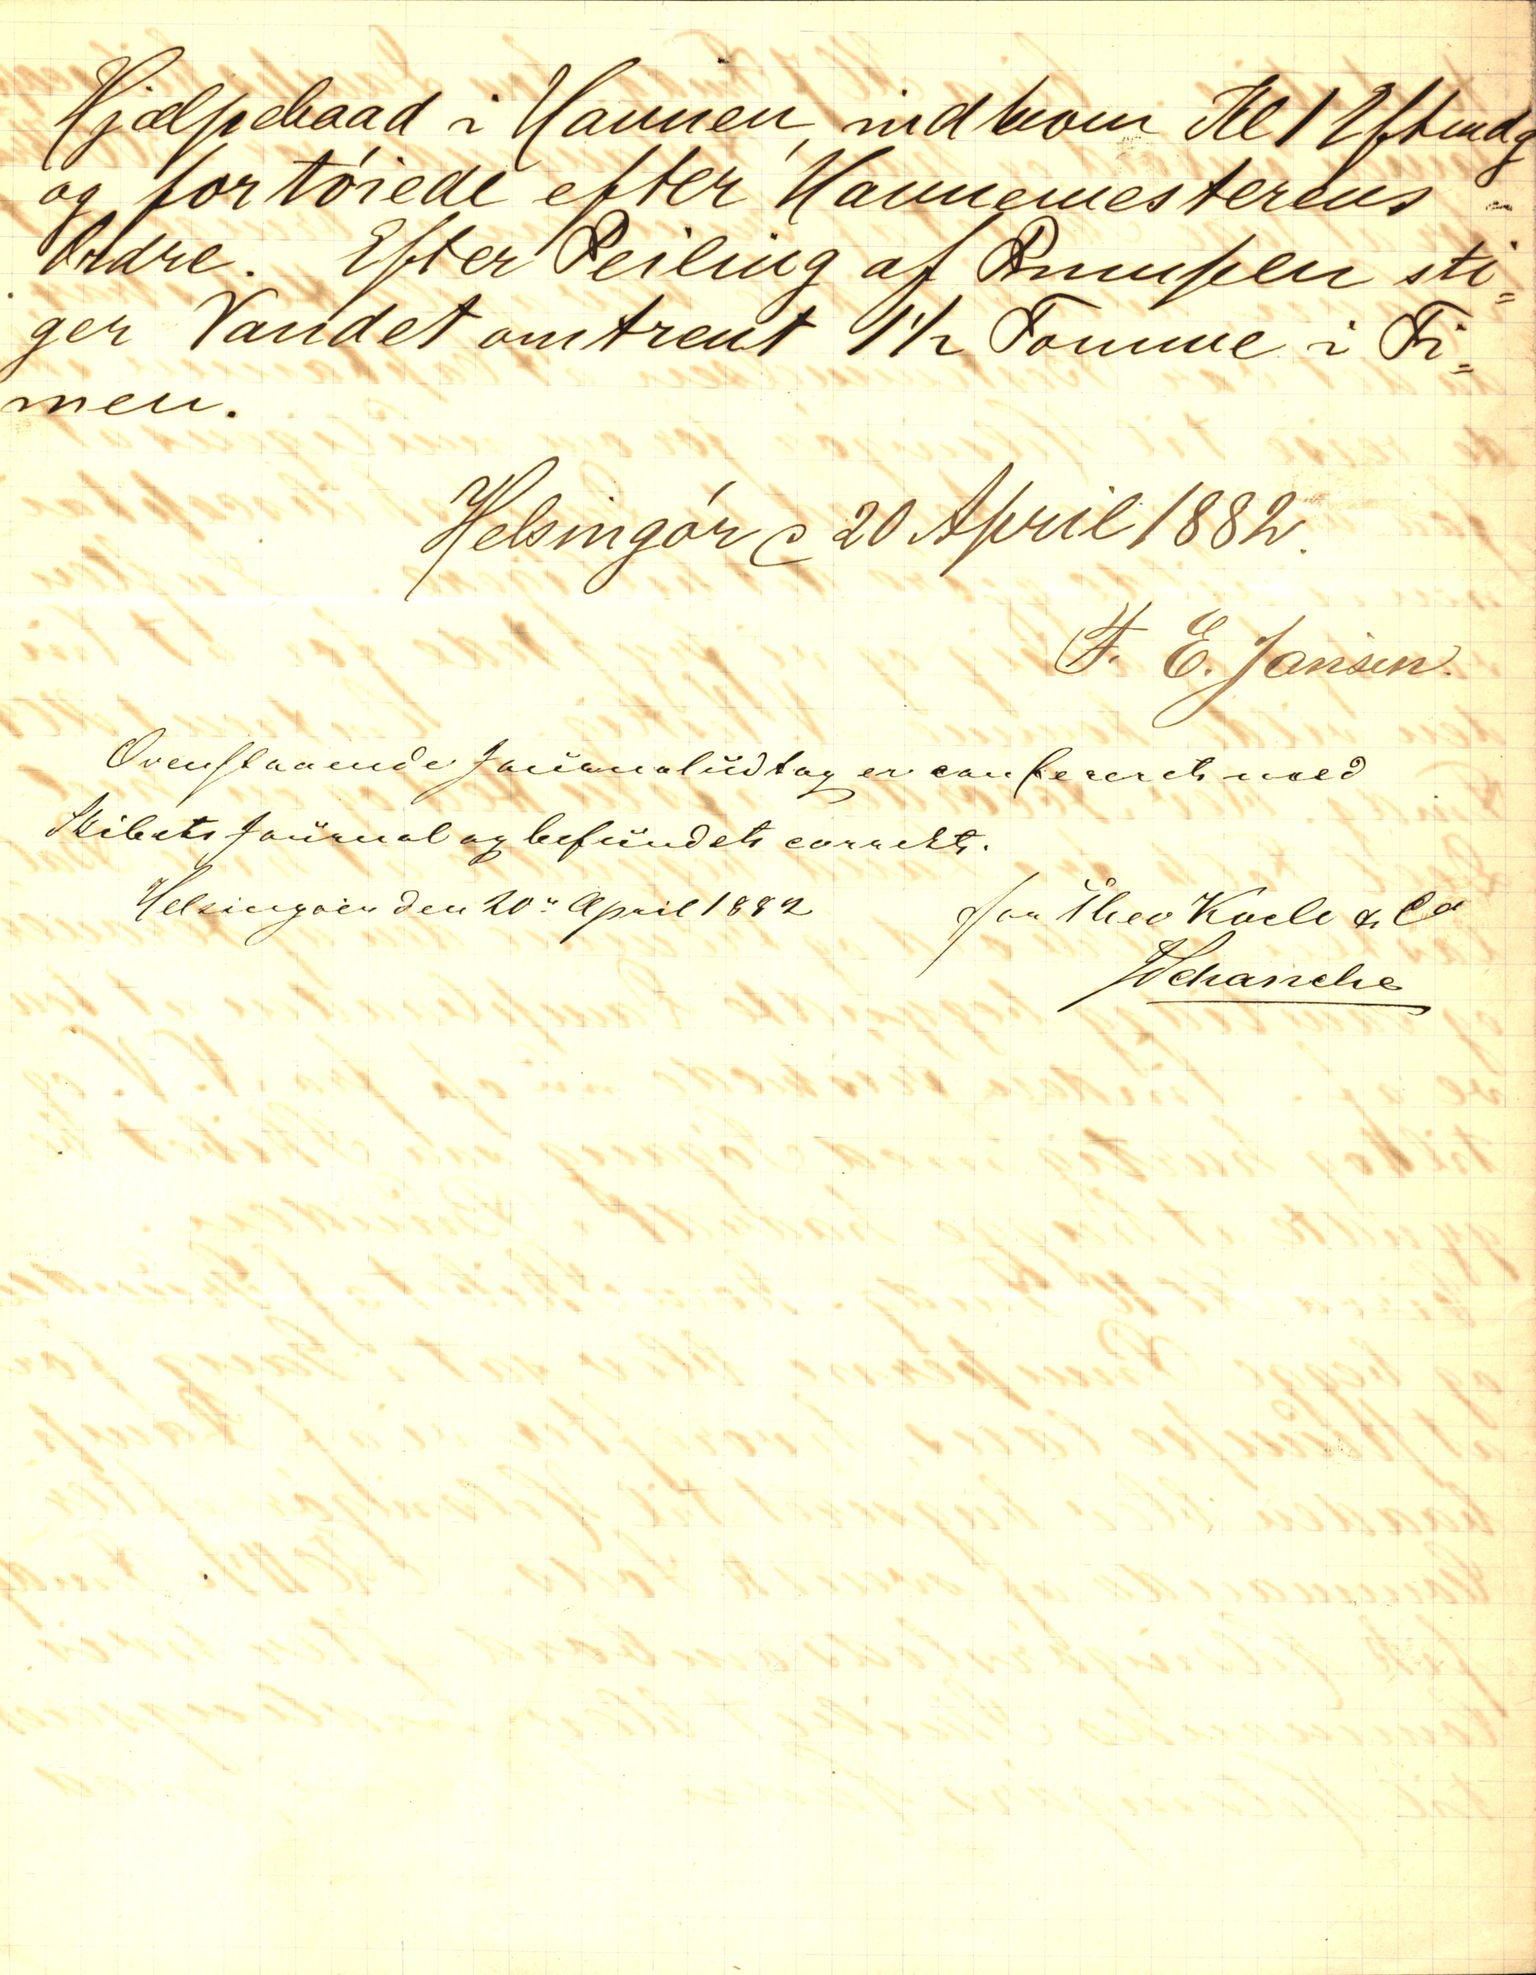 Hjælpebaad i Havnen, indkom Kl 1 Eftmdg
og fortøiede efter Havnemesterens
Ordre. Efter Peiling af Pumpen sti-
ger Vandet omtrent 1 1/2 Tomme i Ti-
men.
Helsingør d 20 April 1882.
F. E. Jansen.
Ovenstaaende Journaludtog er confereret med
Skibets Journal og befundet correkt.
Helsingør den 20 April 1882
for Theo Koch & Co